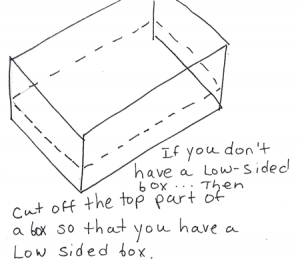 If you don't
have a Low-sided
box... Then
Cut off the top part of
a box so that you have a
Low sided box.